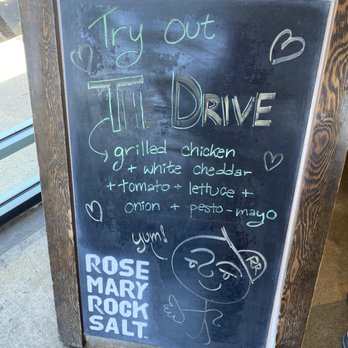 Try Out
THE DRIVE
grilled chicken
+ white cheddar
+ tomato + lettuce +
onion + pesto-mayo
yum!
RR
ROSE
MARY
ROCK
SALT